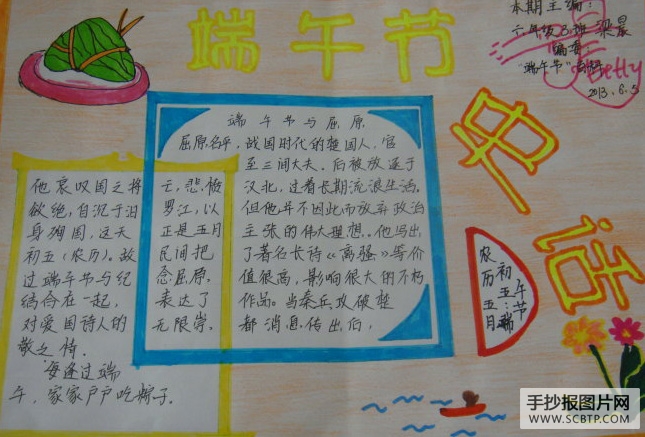 端午节
史话
本期主编:
六年级3班 梁晨
编委
"端午节"
Betty
2013.6.5
端午节与屈原
屈原,名平,战国时代的楚国人,官
至三闾大夫。后被放逐于
汉北,过着长期流浪生活,
但他并不因此而放弃政治
主张的伟大理想。他写出
了著名长诗《离骚》等价
值很高,影响很大的不朽
作品。当秦兵攻破楚
都消息传出后,
他哀叹国之将亡,悲愤
欲绝,自沉于汨罗江,以
身殉国,这天正是五月
初五(农历)。故民间把
过端午节与纪念屈原
结合在一起,表达了
对爱国诗人的无限崇
敬之情.
每逢过端
午,家家户户吃粽子.
农历五月
初五:端
午节
手抄报图片网
WWW.SCBTP.COM